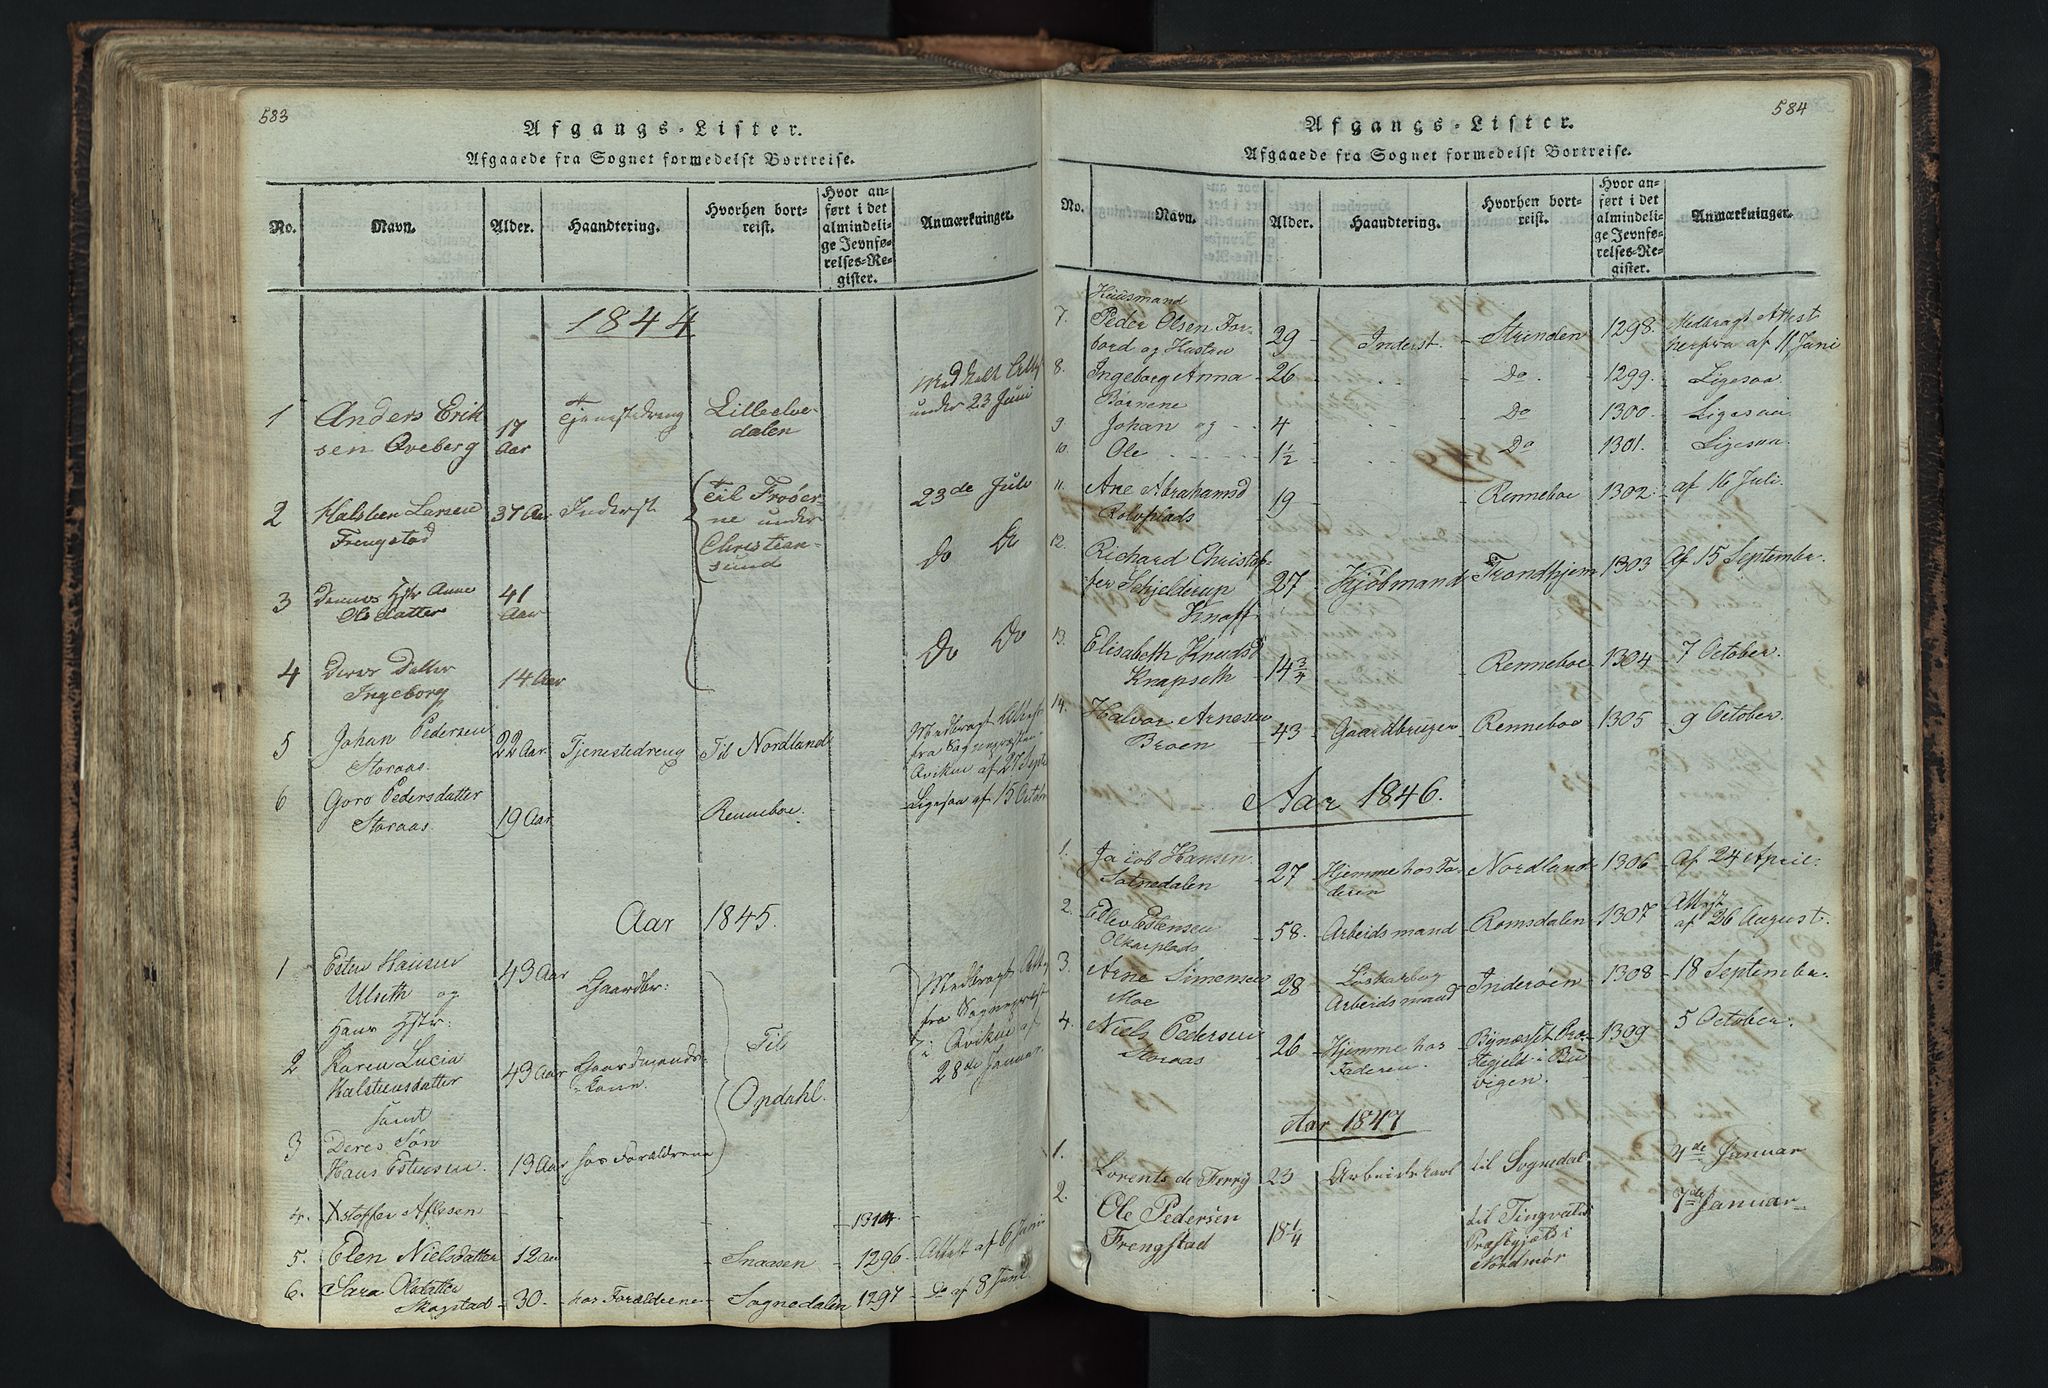 583
Afgangs-Lister.
Afgaaede fra Sognet formedelst Bortreise.
No. Navn. Alder. Haandtering. Hvorhen bortreist. Hvor anført i det almindelige Jevnførelses-Register. Anmærkninger.
1844
1 Anders Erik 17 Tjenestedreng Lilleelve- under 23 Juni
sen Aveberg Aar dalen
2 Halsten Larsen 37 Aar Inderst Til Frøer- 23de Juli
Frengstad ne under
Christian-
sund
3 Dennes Hstr Anne 41 Do Do
Olsdatter Aar
4 Deres Datter 14 Aar Do Do
Ingeborg
5 Johan Pedersen 22 Aar Tjenestedreng Til Nordland Medbragt Attest
Storaas. fra Sognepræsten
Qvikne af 27 Sept
6 Goro Pedersdatter 19 Aar Renneboe. Ligesaa af 15 Octobr
Storaas.
Aar 1845.
1 Esten Hansen 43 Aar Gaardbr: Medbragt Att.
Ulseth og fra Sognepræst
Hans Hstr: Til i Qvikne af
2 Karen Lucia 43 Aar Gaardmands- Opdahl. 28de Januar.
Halstensdatter kone.
samt
3 Deres Søn
Hans Estensen. 13 Aar hos Forældrene
4. Xstoffer Aflesen 1314.
5. Elen Nielsdatter 12 Aar Snaasen 1296 Attest af 6 Juni
6. Sara Olsdatter
Skogstad 30. hos Forældrene Sognedalen 1297 Do af 8 Juni
584
Afgangs-Lister.
Afgaaede fra Sognet formedelst Bortreise.
No. Navn. Alder. Haandtering. Hvorhen bortreist. Hvor anført i det almindelige Jevnførelses-Register. Anmærkninger.
Huusmand
7. Peder Olsen For- 29 Inderst. Strinden 1298. Medbragt Attest
bord og Hustru herfra af 11 Juni
8. Ingeborg Anna 26 Do 1299. Ligesaa
Børnene
9. Johan og 4 Do 1300. Ligesaa
10. Ole 1½ Do 1301. Ligesaa
11. Ane Abrahamsd 19 Renneboe 1302. af 16 Juli.
Rolvplads
12. Richard Christof-
fer Schjelderup 27 Kjøbmand Trondhjem 1303 Af 15 September.
Knoff
13. Elisabeth Knudsd 14¾ Renneboe 1304 7 October.
Knapseth
14. Halvor Arnesen 43 Gaardbruger Renneboe 1305 9 October.
Broen
Aar 1846.
1. Jacob Hansen 27 Hjemme hos Fa- Nordland 1306 Af 24 April:
Sognedalen deren
2. Estensen 58. Arbeidsmand Romsdalen 1307 af 26 August.
3. Arne Simensen 28 Løskarl og Inderøen 1308 18 September.
Moe Arbeidsmand
4. Niels Pedersen 26 Hjemme hos Bynæsset Præ- 1309 5 October.
Storaas Faderen. stegjeld i Bu
vigen.
Aar 1847
1. Lorents de Ferry 23 Arbeidskarl til Sognedal 4de Januar
2. Ole Pedersen 18¼ til Tingvold 7de Januar
Frengstad Præstegjeld i
Nordmør